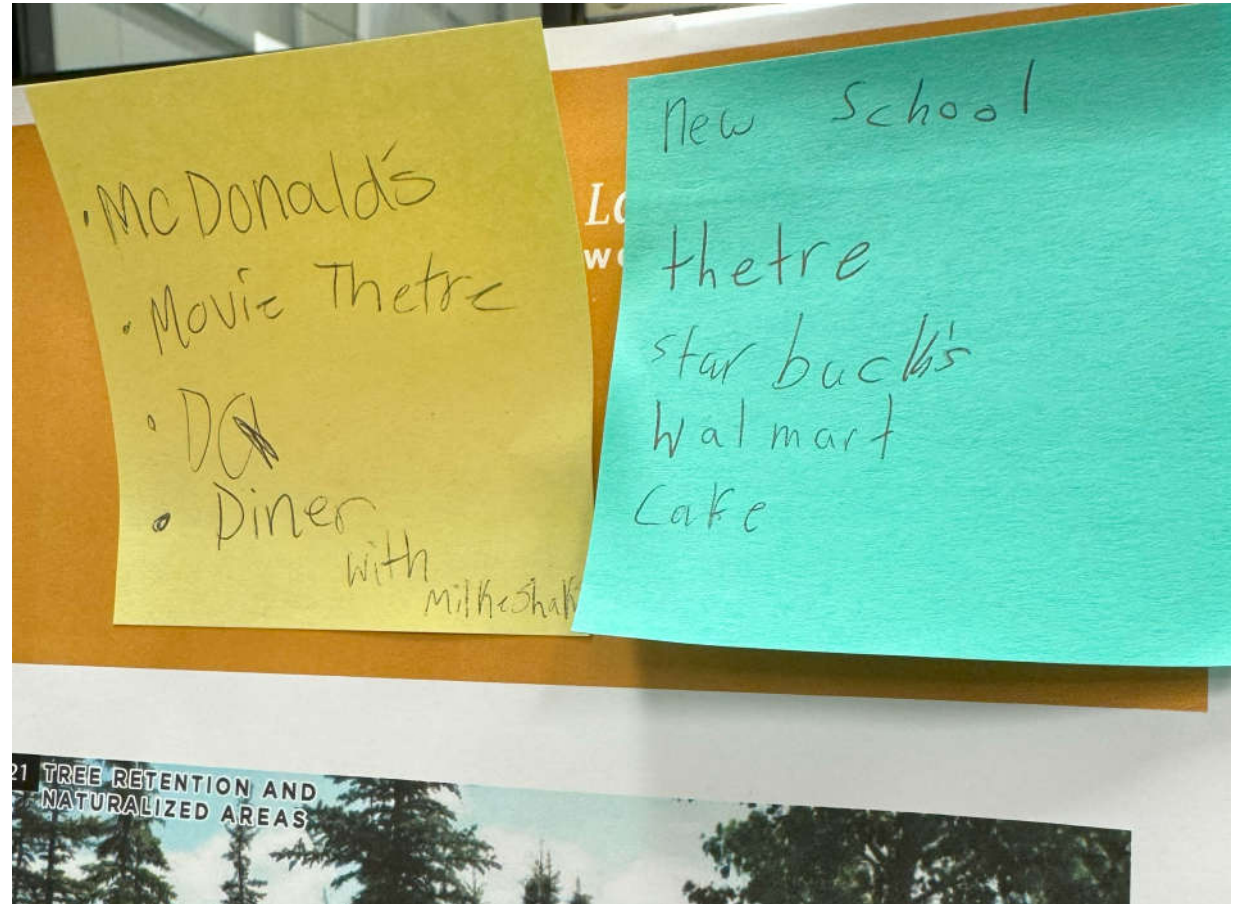 • McDonald's
• Movie Thetre
• DQ
• Diner
with
Milkeshak
New School
thetre
starbuck's
Walmart
Cafe
Lo
21 TREE RETENTION AND
NATURALIZED AREAS